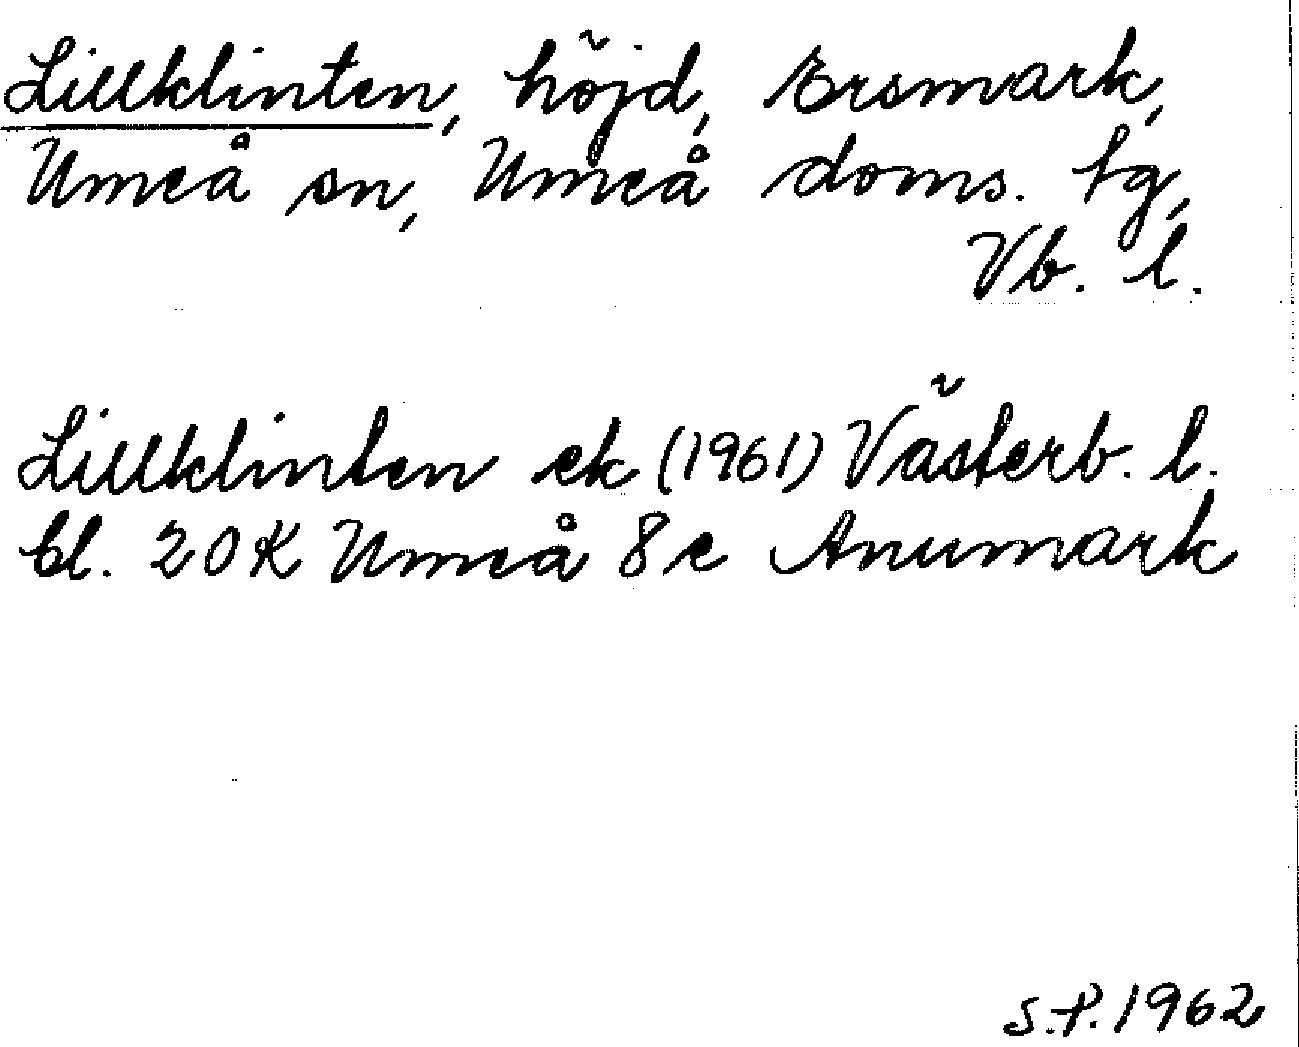 Lillklinten, höjd, Ersmark,
Umeå sn, Umeå doms. tg,
Vb. l.
Lillklinten ek (1961) Västerb. l.
bl. 20K Umeå 8e Anumark
S.P. 1962